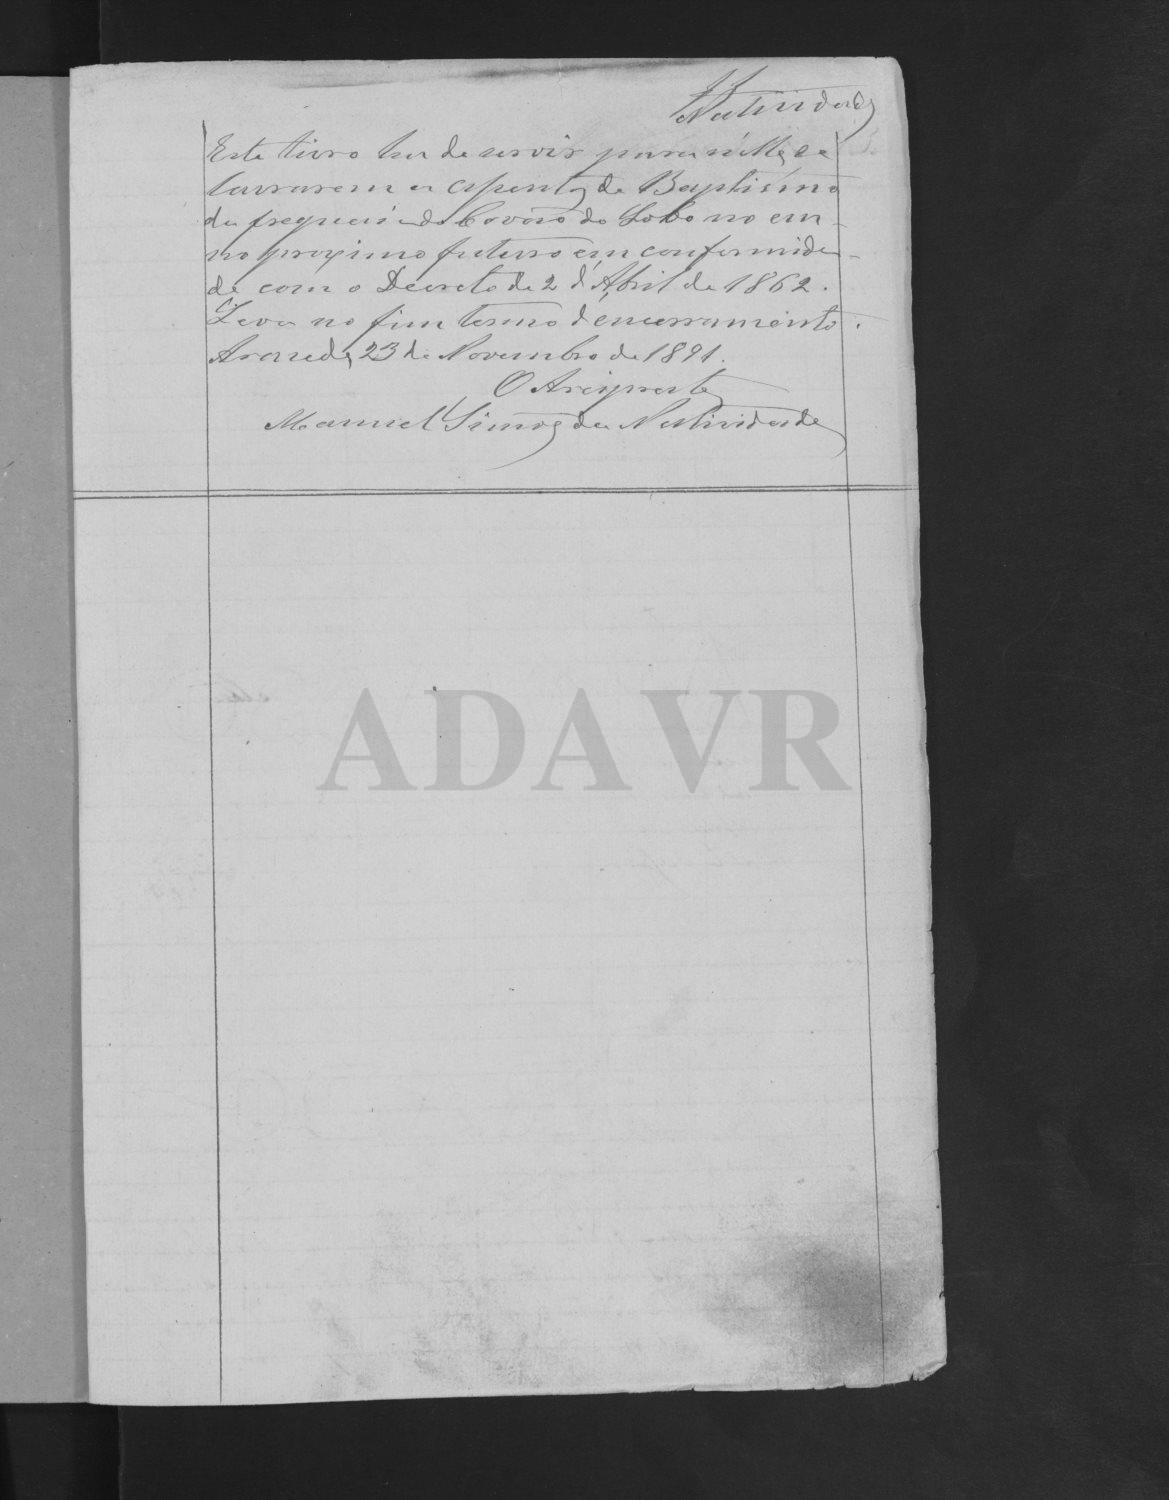 Natividade
Este livro ha de servir para n'elle se
lavrarem os assentos de Baptismo
da freguesia do Covão do Lobo no an-
no proximo futuro em conformida-
de com o Decreto de 2 d'Abril de 1862.
Leva no fim termo d'encerramento.
Arazede, 23 de Novembro de 1891.
O Arcipreste
Manuel Simões da Natividade
ADAVR